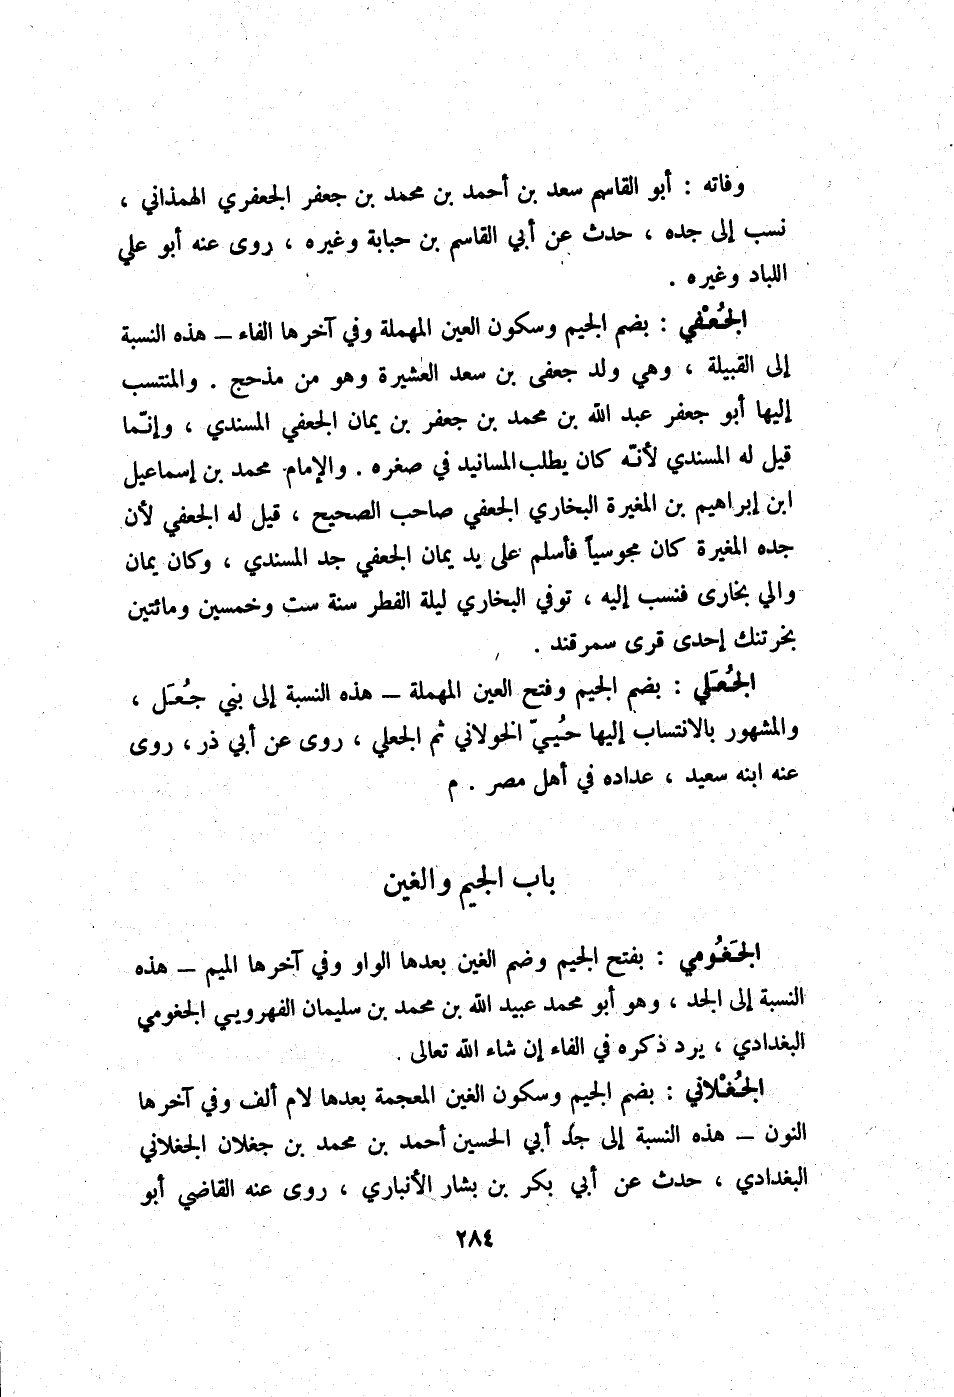 وفاته : أبو القاسم سعد بن أحمد بن محمد بن جعفر الجعفري الهمذاني ،
نسب إلى جده ، حدث عن أبي القاسم بن حبابة وغيره ، روى عنه أبو علي
اللباد وغيره .
الجُعْفي : بضم الجيم وسكون العين المهملة وفي آخرها الفاء – هذه النسبة
إلى القبيلة ، وهي ولد جعفى بن سعد العشيرة وهو من مذحج . والمنتسب
إليها أبو جعفر عبد الله بن محمد بن جعفر بن يمان الجعفي المسندي ، وإنّما
قيل له المسندي لأنّه كان يطلب المسانيد في صغره . والإمام محمد بن إسماعيل
ابن إبراهيم بن المغيرة البخاري الجعفي صاحب الصحيح ، قيل له الجعفي لأن
جده المغيرة كان مجوسياً فأسلم على يد يمان الجعفي جد المسندي ، وكان يمان
والي بخارى فنسب إليه ، توفي البخاري ليلة الفطر سنة ست وخمسين ومائتين
بخرتنك إحدى قرى سمرقند .
الجُعَلي : بضم الجيم وفتح العين المهملة – هذه النسبة إلى بني جُعَل ،
والمشهور بالانتساب إليها حُييّ الخولاني ثم الجعلي ، روى عن أبي ذر ، روى
عنه ابنه سعيد ، عداده في أهل مصر . م
باب الجيم والغين
الجَغُومي : بفتح الجيم وضم الغين بعدها الواو وفي آخرها الميم – هذه
النسبة إلى الجد ، وهو أبو محمد عبيد الله بن محمد بن سليمان الفهرويي الجغومي
البغدادي ، يرد ذكره في الفاء إن شاء الله تعالى .
الجُغْلاني : بضم الجيم وسكون الغين المعجمة بعدها لام ألف وفي آخرها
النون – هذه النسبة إلى جد أبي الحسين أحمد بن محمد بن جغلان الجغلاني
البغدادي ، حدث عن أبي بكر بن بشار الأنباري ، روى عنه القاضي أبو
٢٨٤